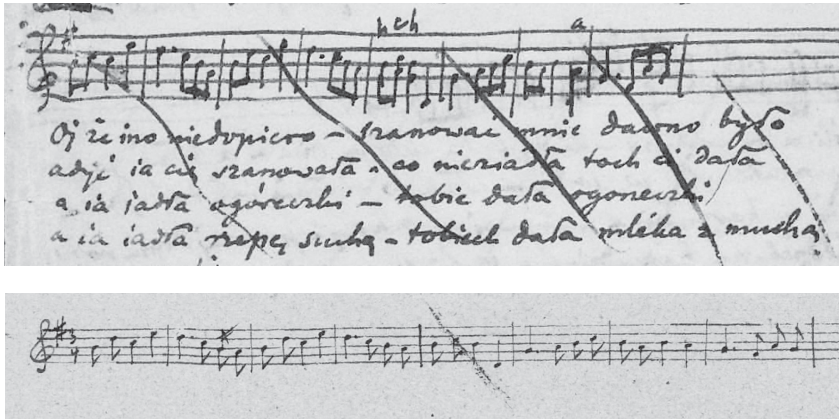 h c h a
Oj że ino niedopiero – szanować mnie dawno było
adyć ia cię szanowała – co nieziadła toch ci dała
a ia iadła ogóreczki – tobie dała ogoneczki
a ia iadła rzepę suchą – tobiech dała mléka z muchą